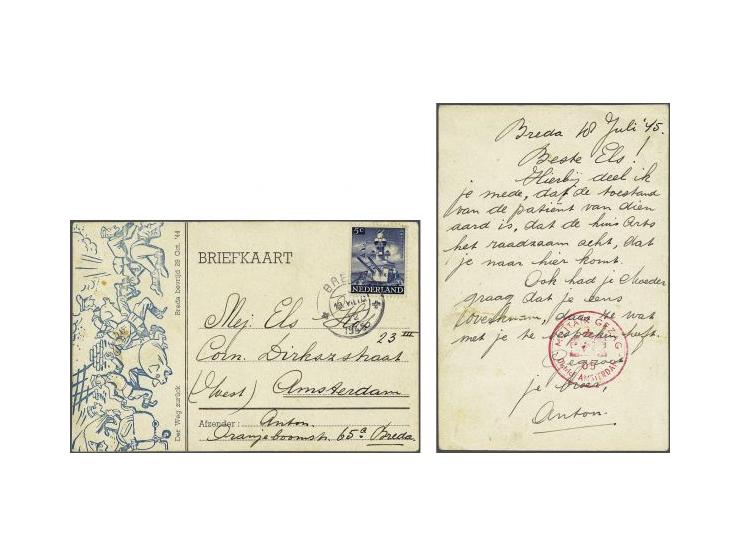 Breda bevrijd 29 Oct. '44
Der Weg zurück
BRIEFKAART
5c
NEDERLAND
Mej. Els
23 III
Corn. Dirkszstraat
(West) Amsterdam
Afzender: Anton.
Oranjeboomstr. 65a Breda
Breda 18 Juli '45.
Beste Els!
Hierbij deel ik
je mede, dat de toestand
van de patiënt van dien
aard is, dat de huis Arts
het raadzaam acht, dat
je naar hier komt.
Ook had je Moeder
graag dat je eens
overkwam, daar ze wat
met je te bespreken heeft.
je broer
Anton.
MILITAIR GEZAG
65
AMSTERDAM